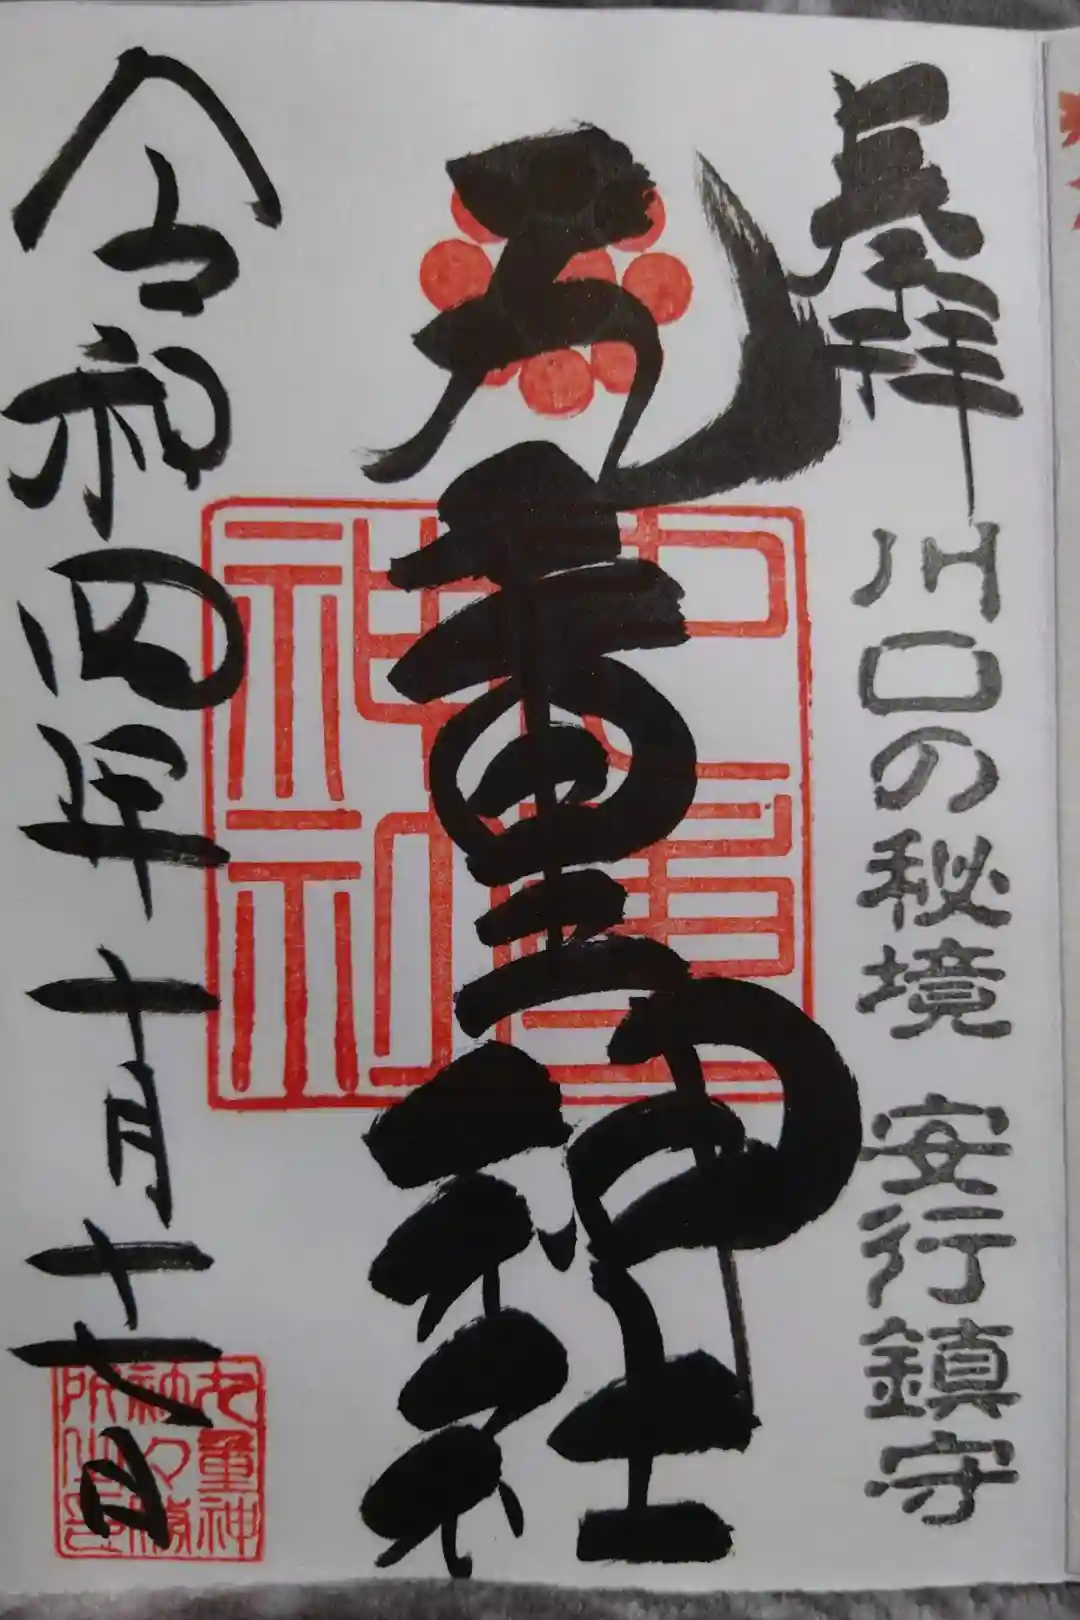 奉拝
川口の秘境 安行鎮守
九重神社
九重神社
令和四年十月十七日
九重神
社々務
所之印